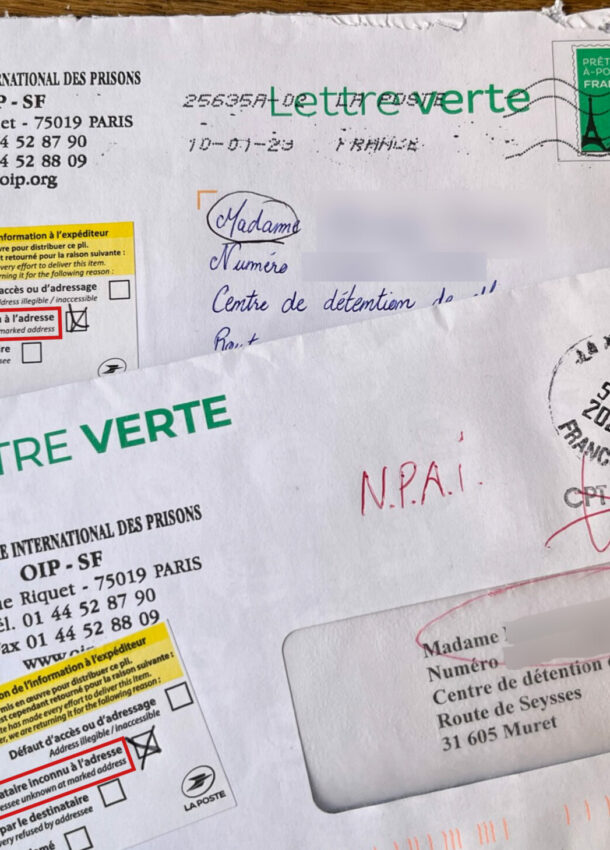 INTERNATIONAL DES PRISONS
OIP - SF
75019 PARIS
4 52 87 90
4 52 88 09
oip.org
25635A-02 LA POSTE
10-01-23 FRANCE
Lettre verte
PRÊT-
À-PO
FRAN
Madame
Numéro
Centre de détention de
Rout
information à l'expéditeur
vre pour distribuer ce pli.
nt retourné pour la raison suivante :
very effort to deliver this item.
rning it for the following reason :
accès ou d'adressage
ddress illegible / inaccessible
à l'adresse
marked address
ire
see
TRE VERTE
N.P.A.i.
FRANC
CPT
E INTERNATIONAL DES PRISONS
OIP - SF
ue Riquet - 75019 PARIS
él. 01 44 52 87 90
Fax 01 44 52 88 09
www.oip
ion de l'information à l'expéditeur
mis en œuvre pour distribuer ce pli.
est cependant retourné pour la raison suivante :
te has made every effort to deliver this item.
er, we are returning it for the following reason :
Défaut d'accès ou d'adressage
Address illegible / inaccessible
ataire inconnu à l'adresse
essee unknown at marked address
par le destinataire
very refused by addressee
LA POSTE
Madame
Numéro
Centre de détention
Route de Seysses
31 605 Muret